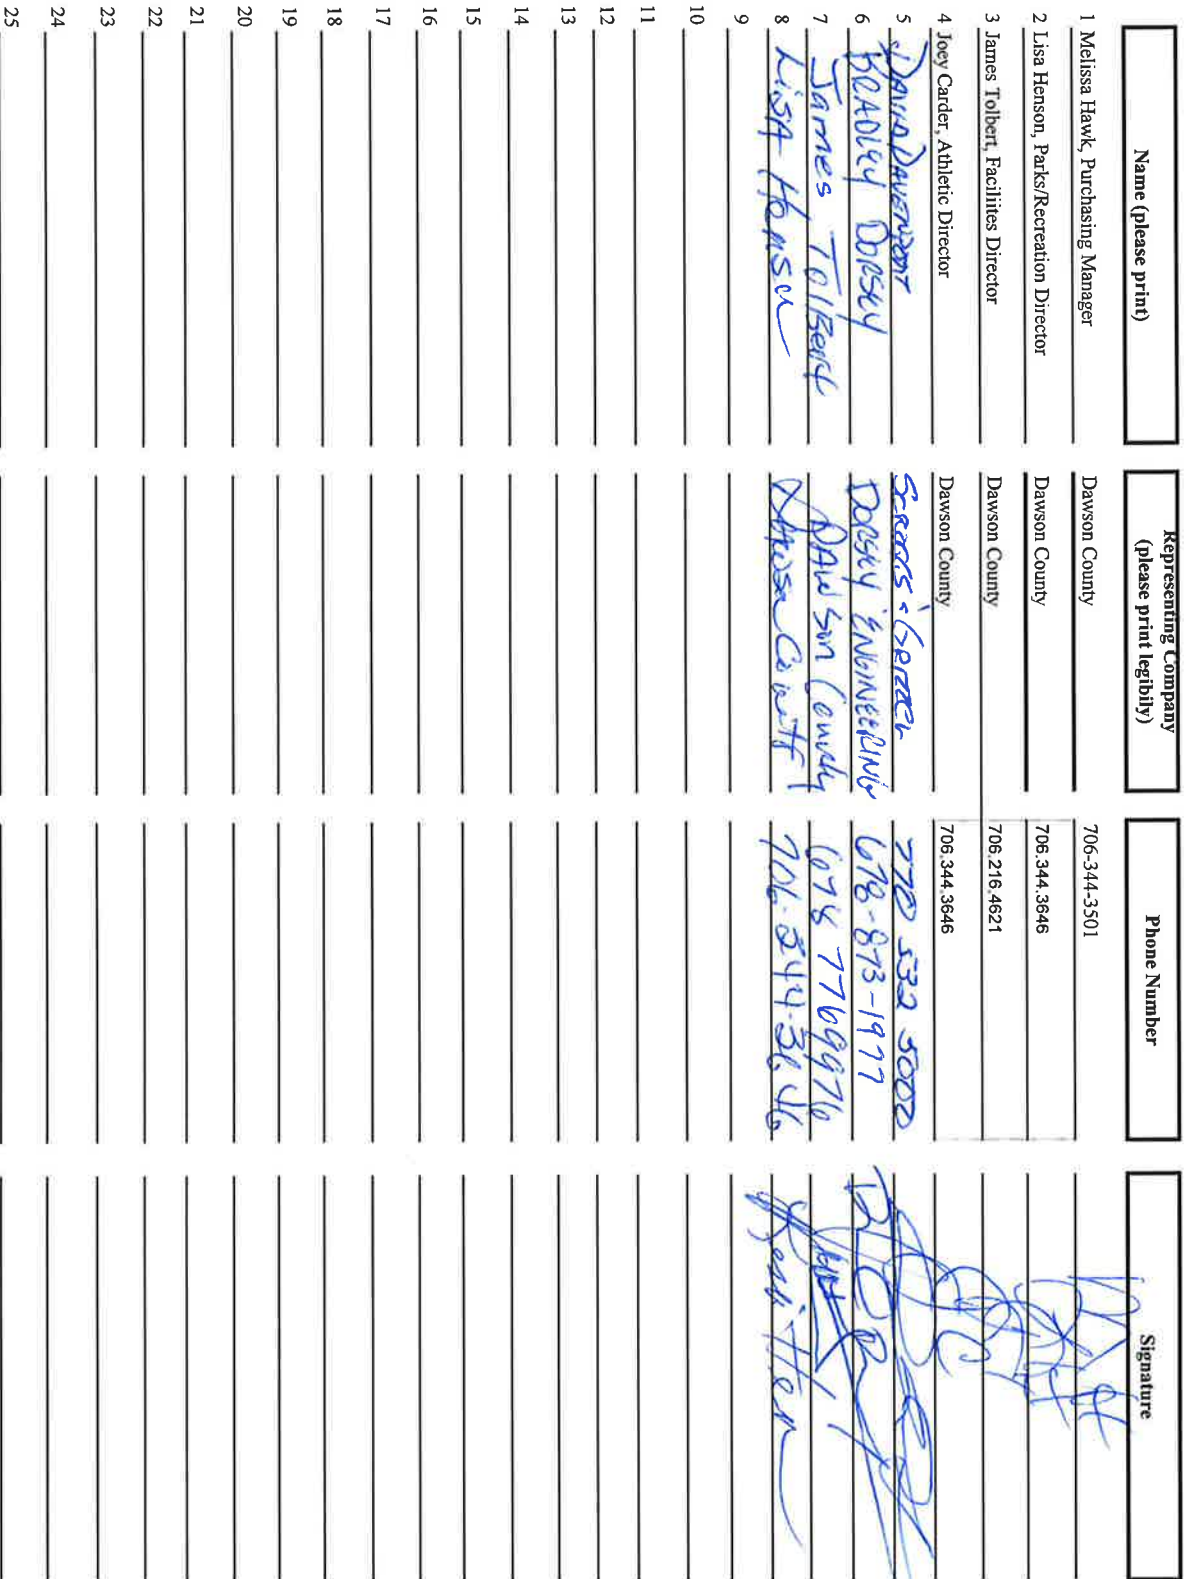 Name (please print) Representing Company (please print legibily) Phone Number Signature
1 Melissa Hawk, Purchasing Manager Dawson County 706-344-3501
2 Lisa Henson, Parks/Recreation Director Dawson County 706.344.3646
3 James Tolbert, Faciliites Director Dawson County 706.216.4621
4 Joey Carder, Athletic Director Dawson County 706.344.3646
5 DAVID DAVENPORT 770 532 5000
6 BRADLEY DORSEY DORSEY ENGINEERING 678-873-1977
7 James Tolbert Dawson County 678 7769976
8 LiSA Henson Dawson County 706-344-3646
9
10
11
12
13
14
15
16
17
18
19
20
21
22
23
24
25